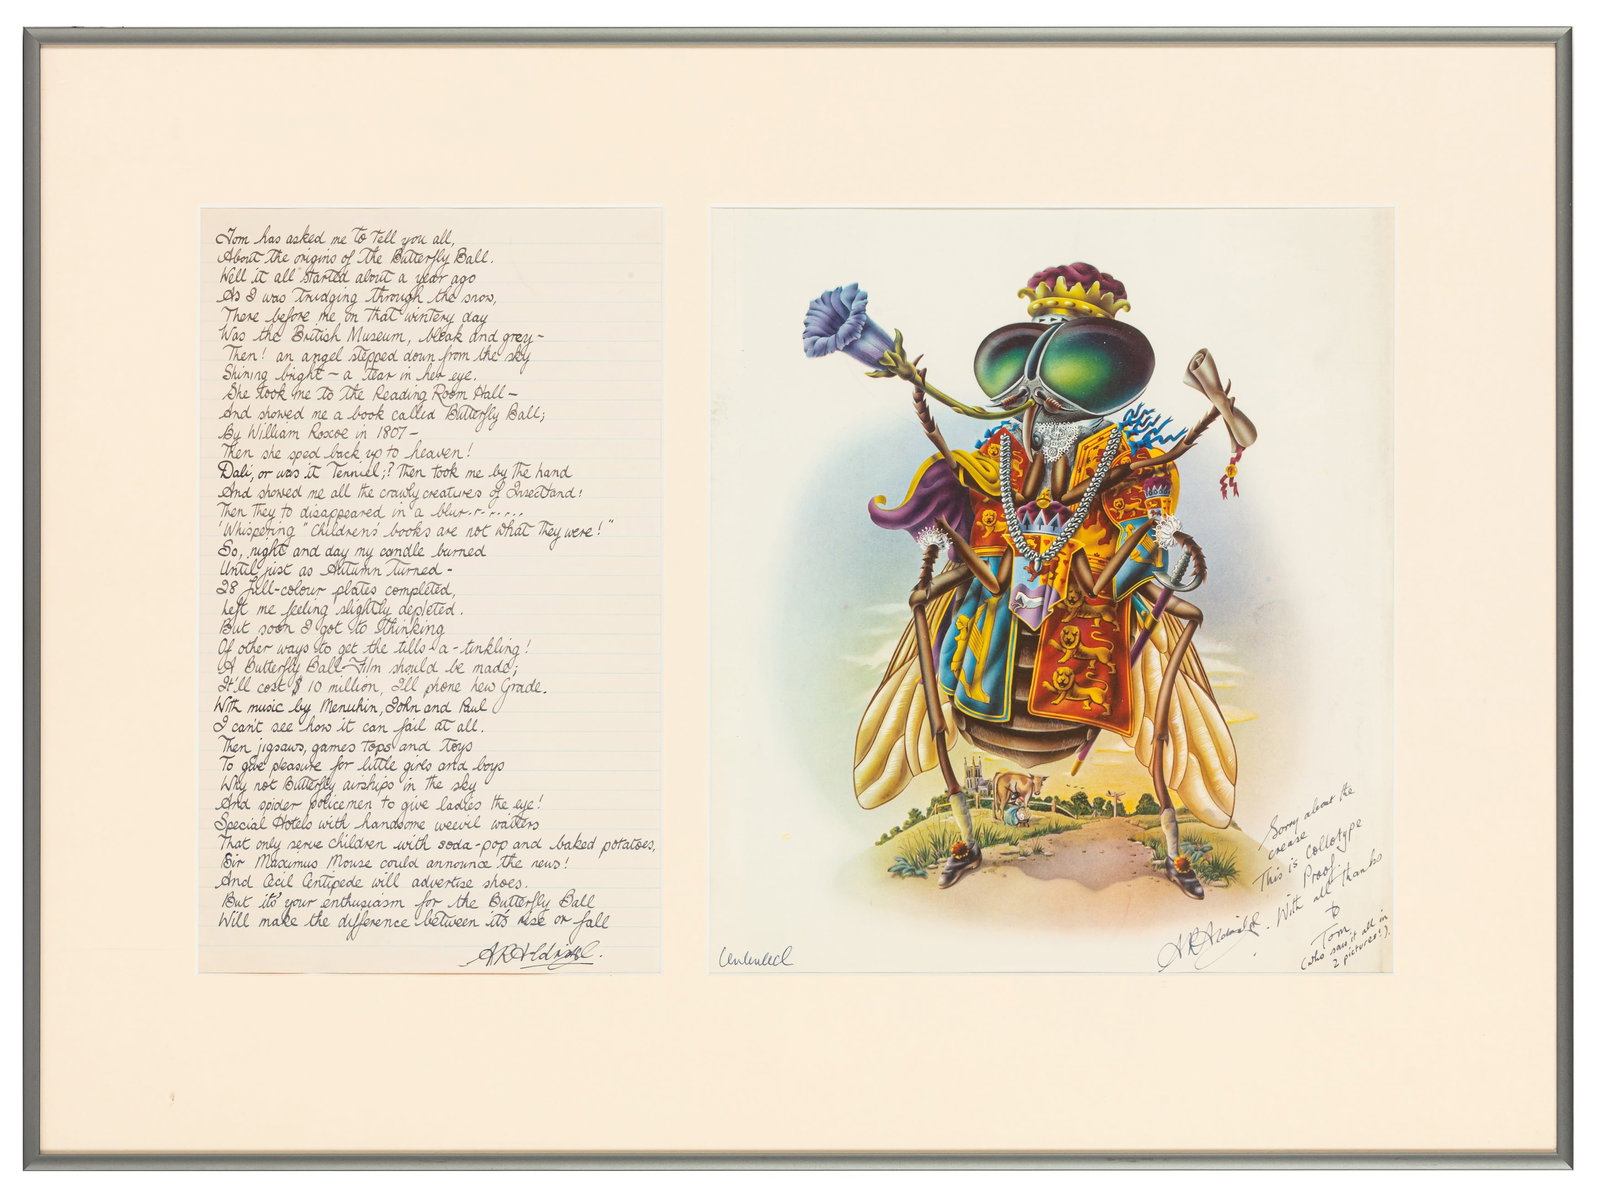 Tom has asked me to tell you all,
About the origins of the Butterfly Ball.
Well it all started about a year ago
As I was trudging through the snow,
There before me on that wintery day
Was the British Museum, bleak and grey-
Then! an angel stepped down from the sky
Shining bright - a tear in her eye.
She took me to the Reading Room Hall-
And showed me a book called Butterfly Ball;
By William Roscoe in 1807-
Then she sped back up to heaven!
Dali, or was it Tenniel;? then took me by the hand
And showed me all the crawly creatures of Insectland!
Then they to disappeared in a blur.r.....
'Whispering "Children's books are not what they were!"
So, night and day my candle burned
Until just as Autumn turned-
28 full-colour plates completed,
Left me feeling slightly depleted.
But soon I got to thinking
Of other ways to get the tills-a-tinkling!
A Butterfly Ball-Film should be made;
It'll cost $10 million, I'll phone Lew Grade.
With music by Menuhin, John and Paul
I can't see how it can fail at all.
Then jigsaws, games tops and toys
To give pleasure for little girls and boys
Why not Butterfly airships in the sky
And spider policemen to give ladies the eye!
Special Hotels with handsome weevil waiters
That only serve children with soda-pop and baked potatoes.
Sir Maximus Mouse could announce the news!
And Cecil Centipede will advertise shoes.
But it's your enthusiasm for the Butterfly Ball
Will make the difference between it's rise or fall
Sorry about the
crease
This is Collotype
Proof.
With all thanks
to
Tom
(who saw it all in
2 pictures!).